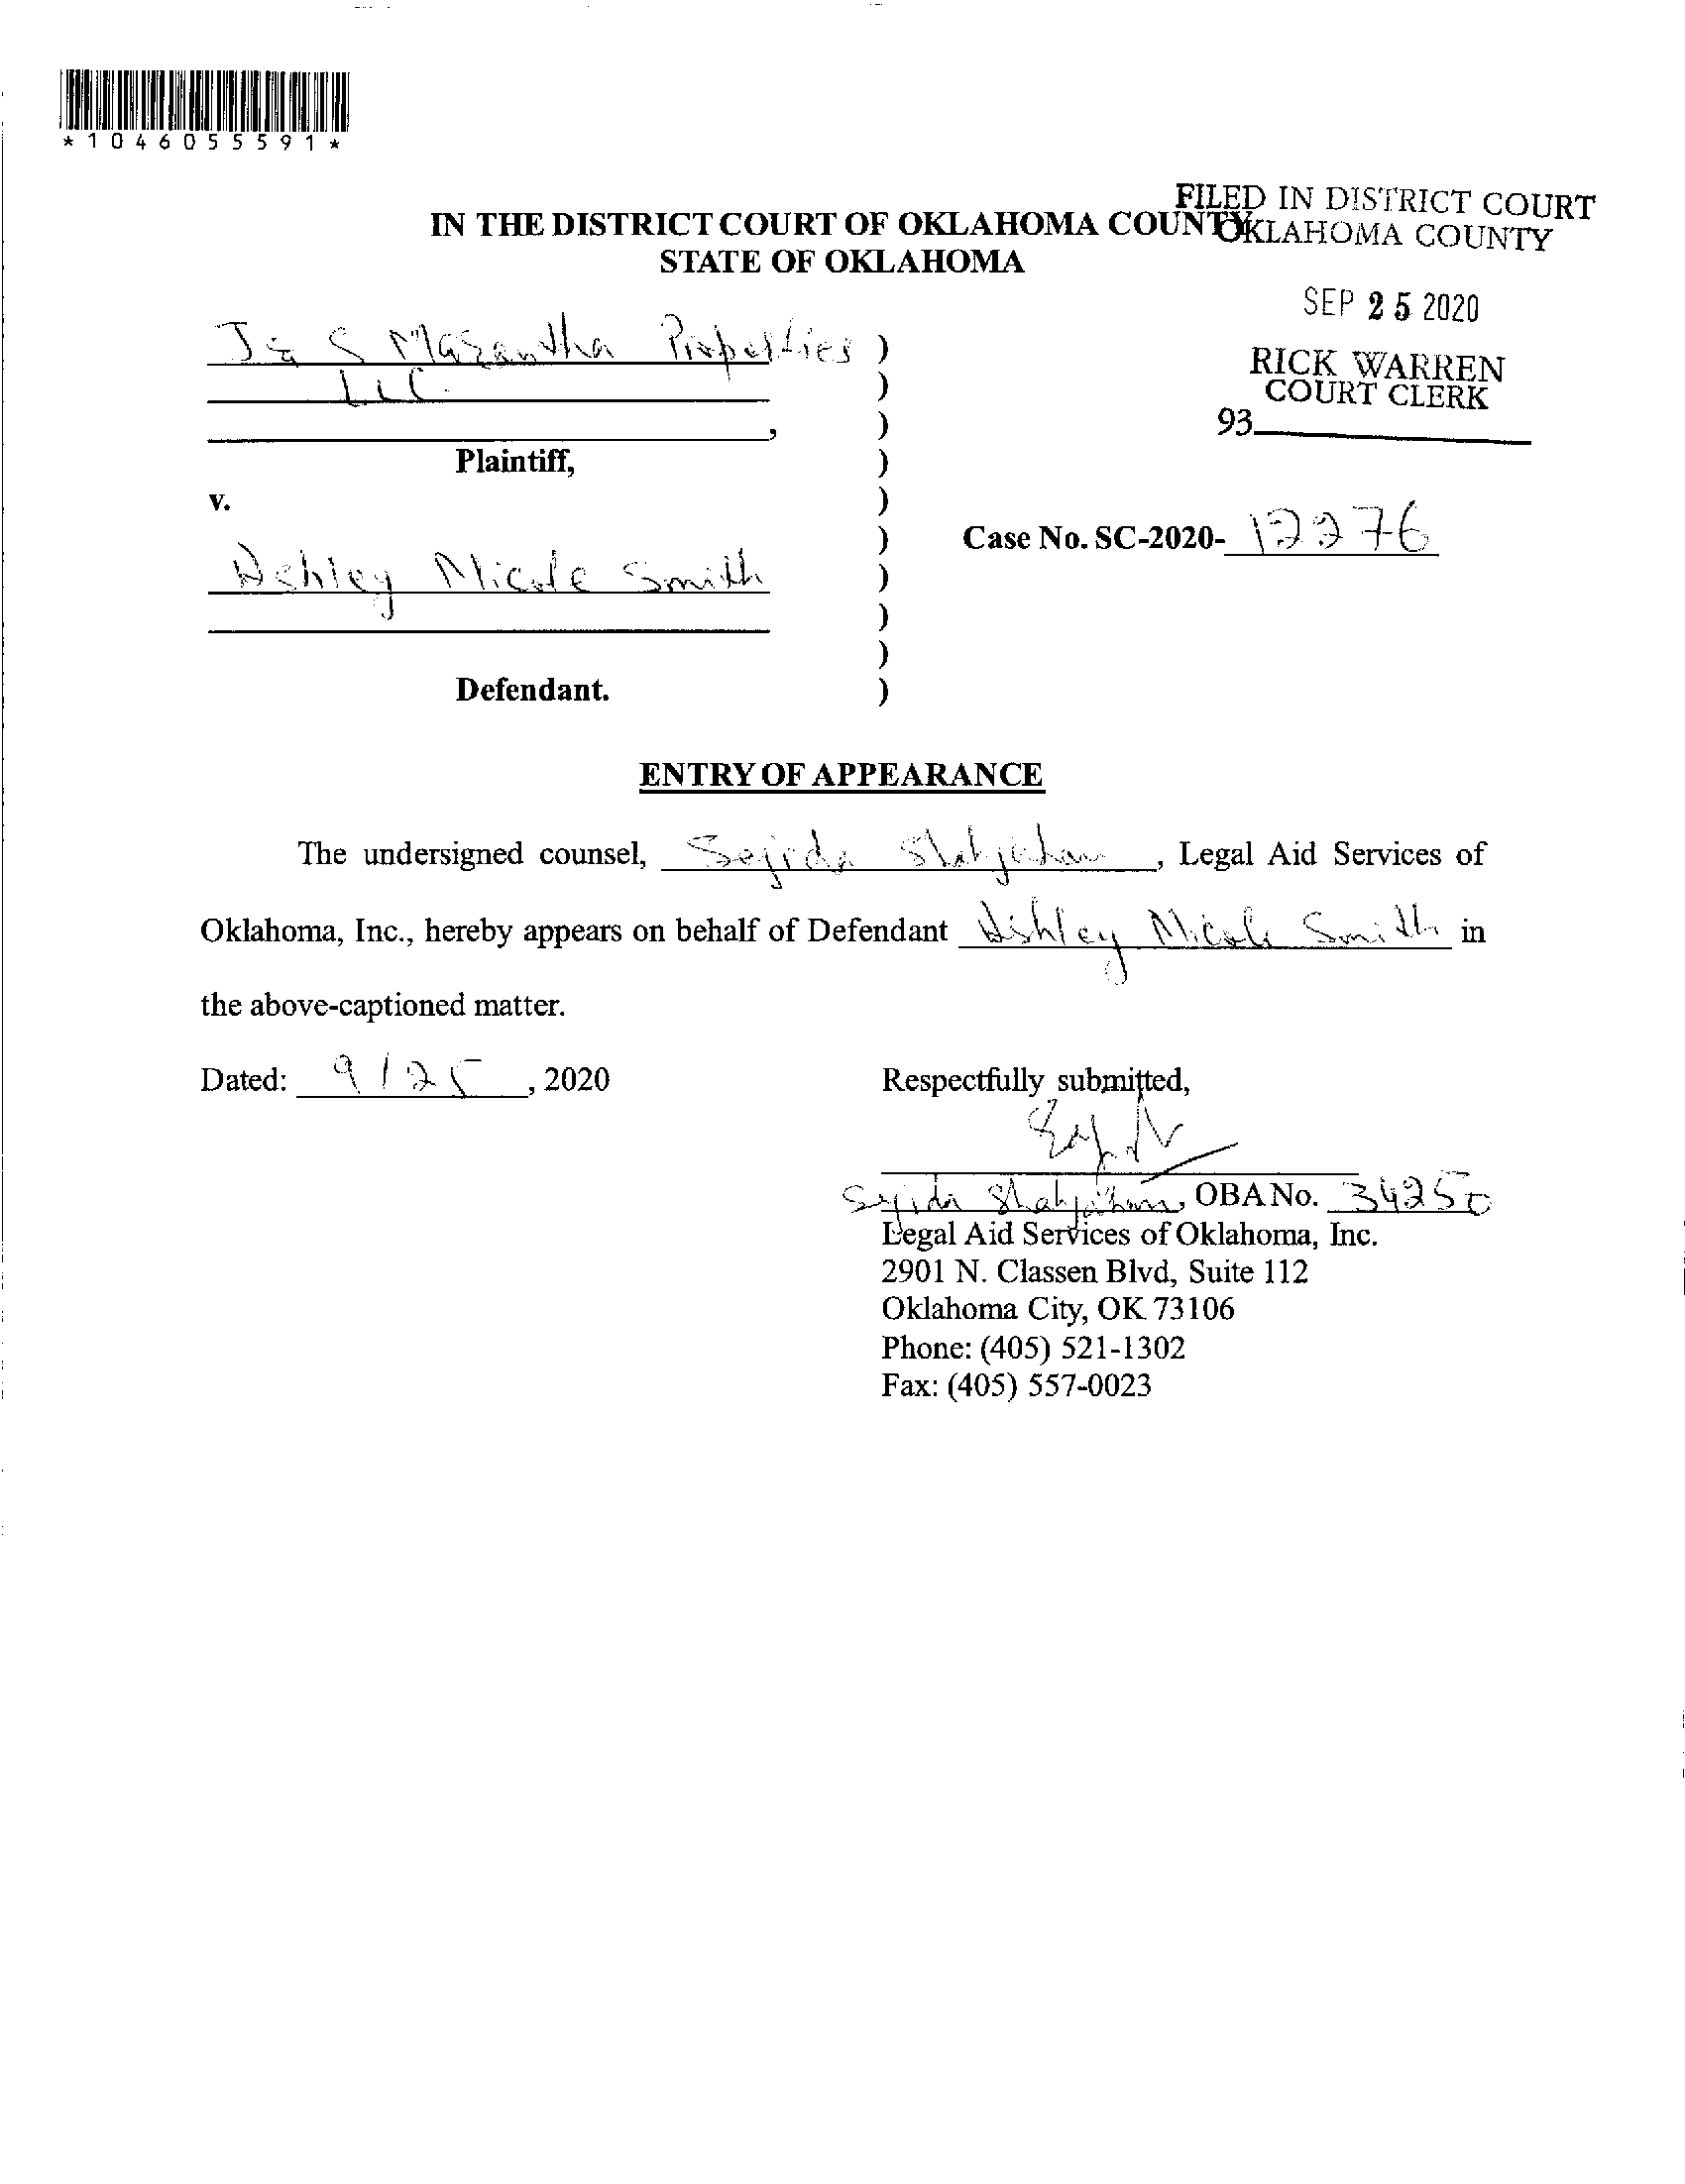 *1046055591*
FILED IN DISTRICT COURT
OKLAHOMA COUNTY
IN THE DISTRICT COURT OF OKLAHOMA COUNTY
STATE OF OKLAHOMA
SEP 25 2020
RICK WARREN
COURT CLERK
93
J & S Properties )
LLC )
, )
Plaintiff, )
v. )
Case No. SC-2020- 12276 )
Ashley Nicole Smith )
)
)
Defendant. )
ENTRY OF APPEARANCE
The undersigned counsel, Sejida Shahjahan, Legal Aid Services of
Oklahoma, Inc., hereby appears on behalf of Defendant Ashley Nicole Smith in
the above-captioned matter.
Dated: 9/25, 2020
Respectfully submitted,
Shahjahan, OBA No. 34250
Legal Aid Services of Oklahoma, Inc.
2901 N. Classen Blvd, Suite 112
Oklahoma City, OK 73106
Phone: (405) 521-1302
Fax: (405) 557-0023